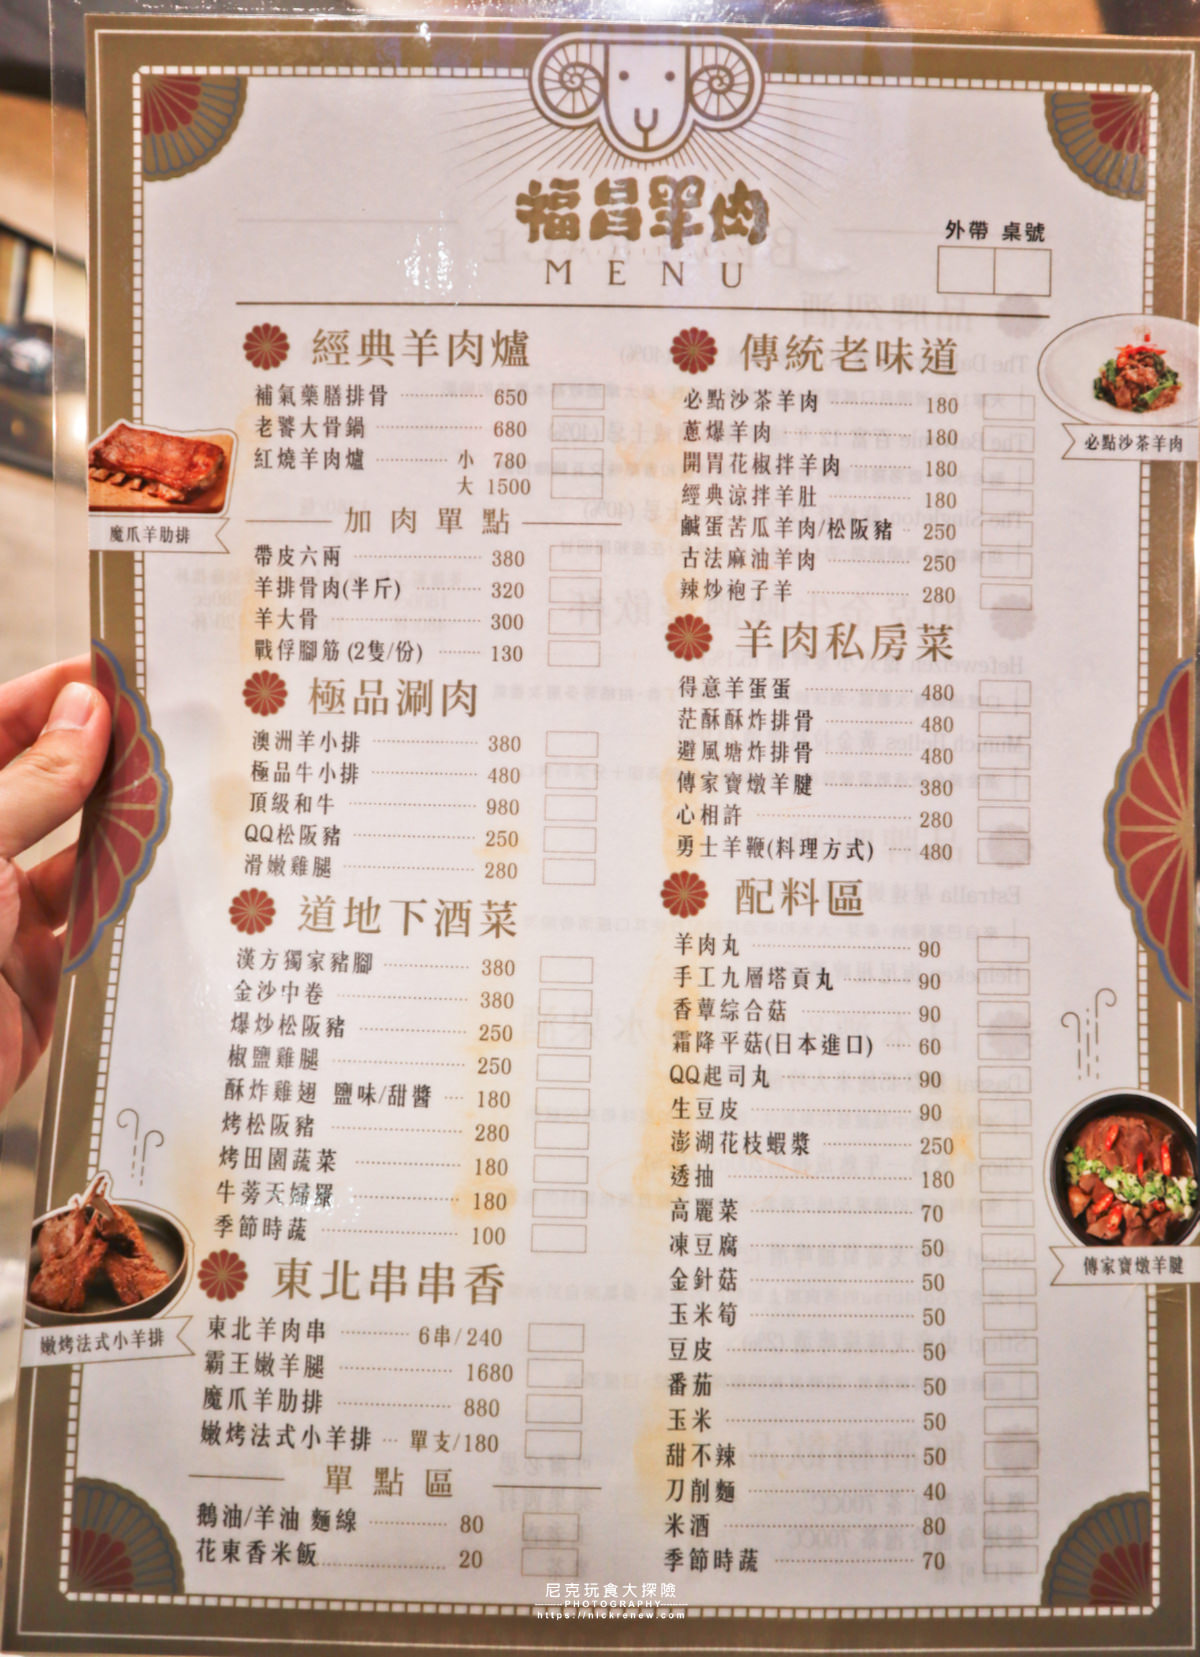 福昌羊肉
MENU
外帶 桌號
經典羊肉爐
補氣藥膳排骨 650
老饕大骨鍋 680
紅燒羊肉爐 小 780
大 1500
加肉單點
帶皮六兩 380
羊排骨肉(半斤) 320
羊大骨 300
戰俘腳筋 (2隻/份) 130
極品涮肉
澳洲羊小排 380
極品牛小排 480
頂級和牛 980
QQ松阪豬 250
滑嫩雞腿 280
道地下酒菜
漢方獨家豬腳 380
金沙中卷 380
爆炒松阪豬 250
椒鹽雞腿 250
酥炸雞翅 鹽味/甜醬 180
烤松阪豬 280
烤田園蔬菜 180
牛蒡天婦羅 180
季節時蔬 100
東北串串香
東北羊肉串 6串/240
霸王嫩羊腿 1680
魔爪羊肋排 880
嫩烤法式小羊排 單支/180
單點區
鵝油/羊油 麵線 80
花東香米飯 20
傳統老味道
必點沙茶羊肉 180
蔥爆羊肉 180
開胃花椒拌羊肉 180
經典涼拌羊肚 180
鹹蛋苦瓜羊肉/松阪豬 250
古法麻油羊肉 250
辣炒袍子羊 280
羊肉私房菜
得意羊蛋蛋 480
茫酥酥炸排骨 480
避風塘炸排骨 480
傳家寶燉羊腱 380
心相許 280
勇士羊鞭(料理方式) 480
配料區
羊肉丸 90
手工九層塔貢丸 90
香蕈綜合菇 90
霜降平菇(日本進口) 60
QQ起司丸 90
生豆皮 90
澎湖花枝蝦漿 250
透抽 180
高麗菜 70
凍豆腐 50
金針菇 50
玉米筍 50
豆皮 50
番茄 50
玉米 50
甜不辣 50
刀削麵 40
米酒 80
季節時蔬 70
魔爪羊肋排
嫩烤法式小羊排
必點沙茶羊肉
傳家寶燉羊腱
尼克玩食大探險
PHOTOGRAPHY
https://nickrenew.com